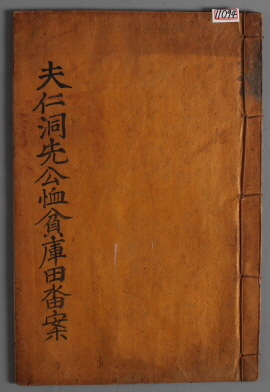 夫仁洞先公恤貧庫田畓案